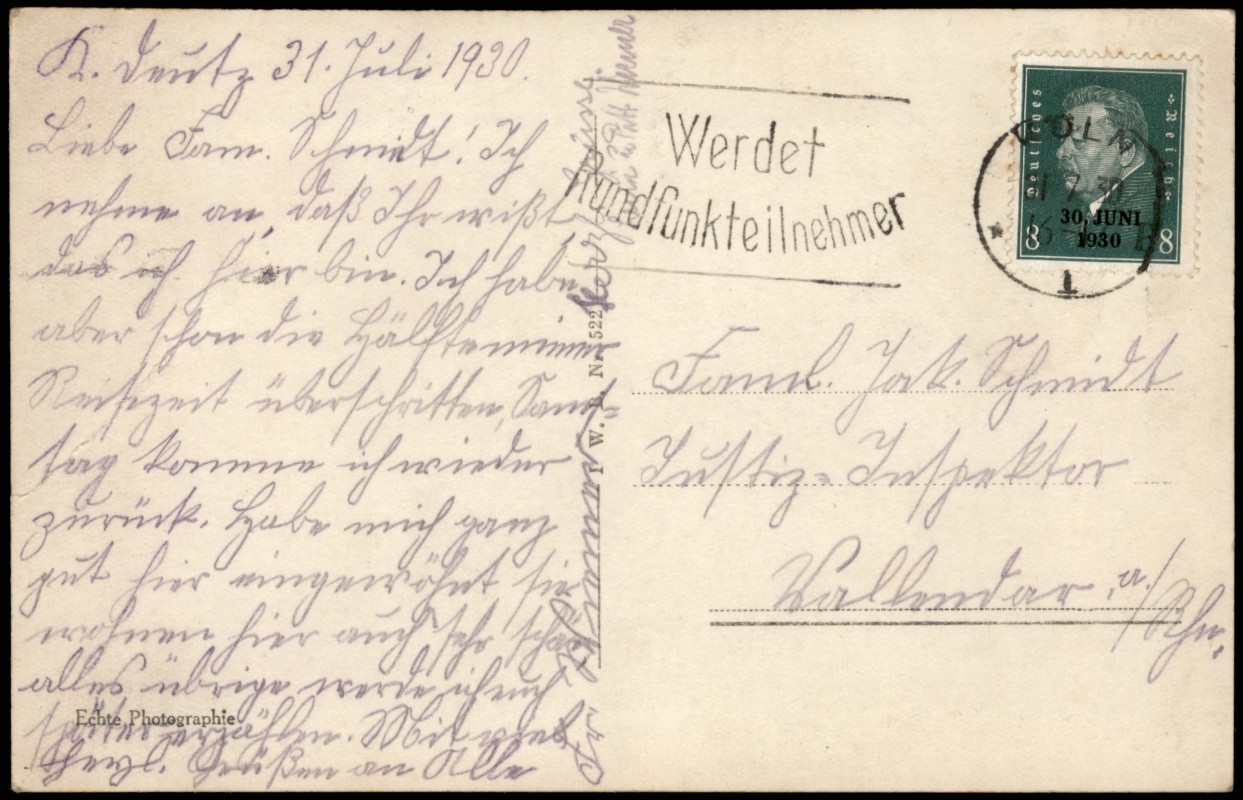 K. Deutz 31. Juli 1930.
Liebe Fam. Schmidt! Ich
nehme an, daß Ihr wißt
das ich hier bin. Ich habe
aber schon die Hälfte meiner
Reisezeit überschritten, Sams-
tag komme ich wieder
zurück. Habe mich ganz
gut hier eingewöhnt, sie
wohnen hier auch sehr schön
alles übrige werde ich euch
später erzählen. Mit viel
herzl. Grüßen an Alle
Echte Photographie
I. W. B. Nr. 522
Werdet
Rundfunkteilnehmer
KÖLN
1
Deutsches Reich
30. JUNI
1930
8 8
Faml. Jak. Schmidt
Justiz-Inspektor
Vallendar a/
Rhn.